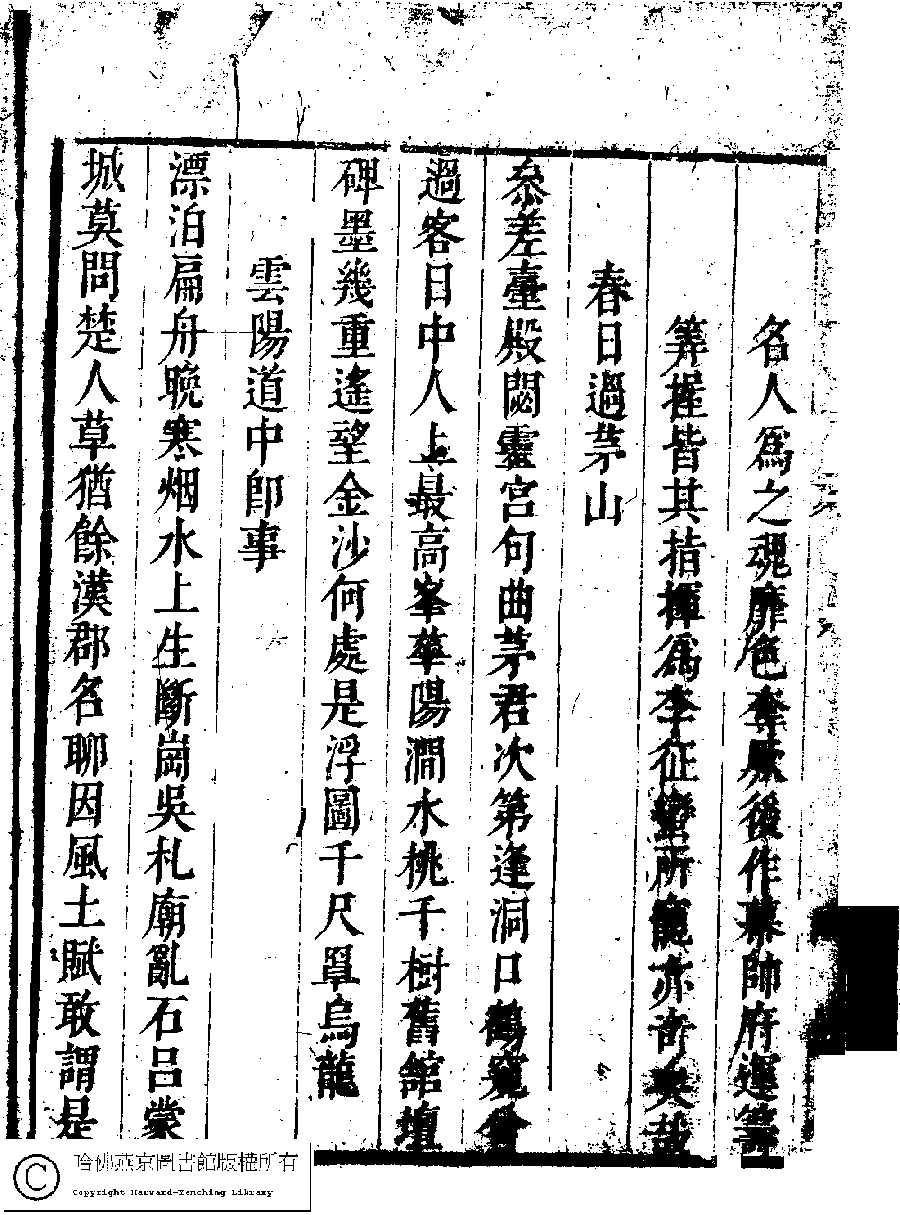 名人爲之魂靡色奪厥後作幕帥府運籌
筭握皆其指揮爲李征蠻所寵亦奇矣哉
春日過茅山
叅差臺殿閟靈宮句曲茅君次第逢洞口鶴窺曾
過客日中人上最高峯華陽澗水桃千樹舊館壇
碑墨幾重遙望金沙何處是浮圖千尺罩烏龍
雲陽道中卽事
漂泊扁舟晚寒烟水上生斷崗吳札廟亂石呂蒙
城莫問楚人草猶餘漢郡名聊因風土賦敢謂是
哈佛燕京圖書館版權所有
Copyright Harvard-Yenching Library